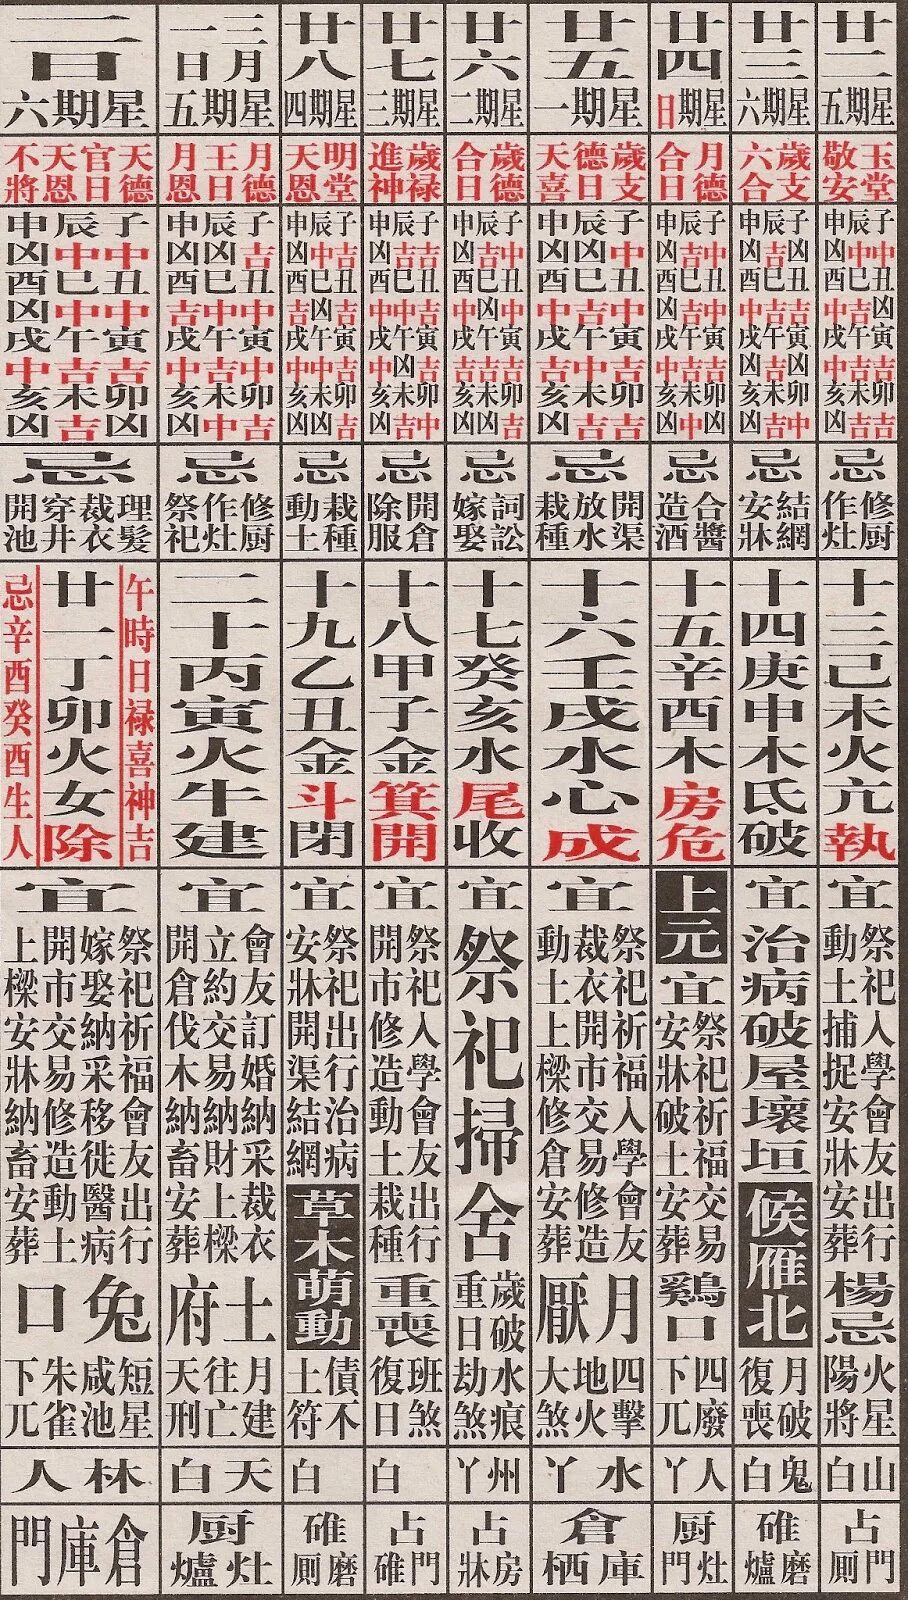 廿二
星期五
玉堂
敬安
子中丑凶寅吉卯吉
辰中巳吉午吉未吉
申凶酉中戌中亥凶
忌
修厨
作灶
十三己未火亢執
宜
祭祀入學會友出行
動土捕捉安牀安葬
楊忌
火星
陽將
山白
占門
廁
廿三
星期六
歲支
六合
子凶丑吉寅凶卯中
辰吉巳吉午吉未吉
申凶酉中戌凶亥凶
忌
結網
安牀
十四庚申木氐破
宜
治病破屋壞垣
候雁北
月破
復喪
鬼白
碓磨
爐
廿四
星期日
月德
合日
子中丑中寅吉卯凶
辰吉巳吉午吉未中
申凶酉凶戌中亥凶
忌
合醬
造酒
十五辛酉木房危
上元
宜
祭祀祈福交易
安牀破土安葬
鷄口
四廢
下兀
人丫
厨灶
門
廿五
星期一
歲支
德日
天喜
子中丑中寅吉卯吉
辰凶巳吉午中未吉
申凶酉中戌吉亥凶
忌
開渠
放水
栽種
十六壬戌水心成
宜
祭祀祈福入學會友
裁衣開市交易修造
動土上樑修倉安葬
月厭
四擊
地火
大煞
水丫
倉庫
栖
廿六
星期二
歲德
合日
子中丑中寅吉卯吉
辰吉巳凶午吉未凶
申凶酉中戌吉亥凶
忌
詞訟
嫁娶
十七癸亥水尾收
宜
祭祀掃舍
歲破水痕
重日劫煞
州丫
占房
牀
廿七
星期三
歲禄
進神
子吉丑吉寅吉卯中
辰吉巳中午凶未吉
申凶酉中戌中亥凶
忌
開倉
除服
十八甲子金箕開
宜
祭祀入學會友出行
開市修造動土栽種
重喪
班煞
復日
白
占門
碓
廿八
星期四
明堂
天恩
子吉丑吉寅吉卯吉
辰中巳凶午中未凶
申凶酉吉戌中亥凶
忌
栽種
動土
十九乙丑金斗閉
宜
祭祀出行治病
安牀開渠結網
草木萌動
債不
土符
白
碓磨
廁
三月一日
星期五
月德
王日
月恩
子吉丑中寅中卯吉
辰凶巳中午吉未中
申凶酉吉戌中亥凶
忌
修厨
作灶
祭祀
二十丙寅火牛建
宜
會友訂婚納采裁衣
立約交易納財上樑
開倉伐木納畜安葬
土府
月建
往亡
天刑
天白
厨灶
爐
二日
星期六
天德
官日
天恩
不將
子中丑中寅吉卯凶
辰中巳中午吉未吉
申凶酉凶戌中亥凶
忌
理髮
裁衣
穿井
開池
午時日禄喜神吉
廿一丁卯火女除
忌辛酉癸酉生人
宜
祭祀祈福會友出行
嫁娶納采移徙醫病
開市交易修造動土
上樑安牀納畜安葬
兔口
短星
咸池
朱雀
下兀
林人
倉庫門